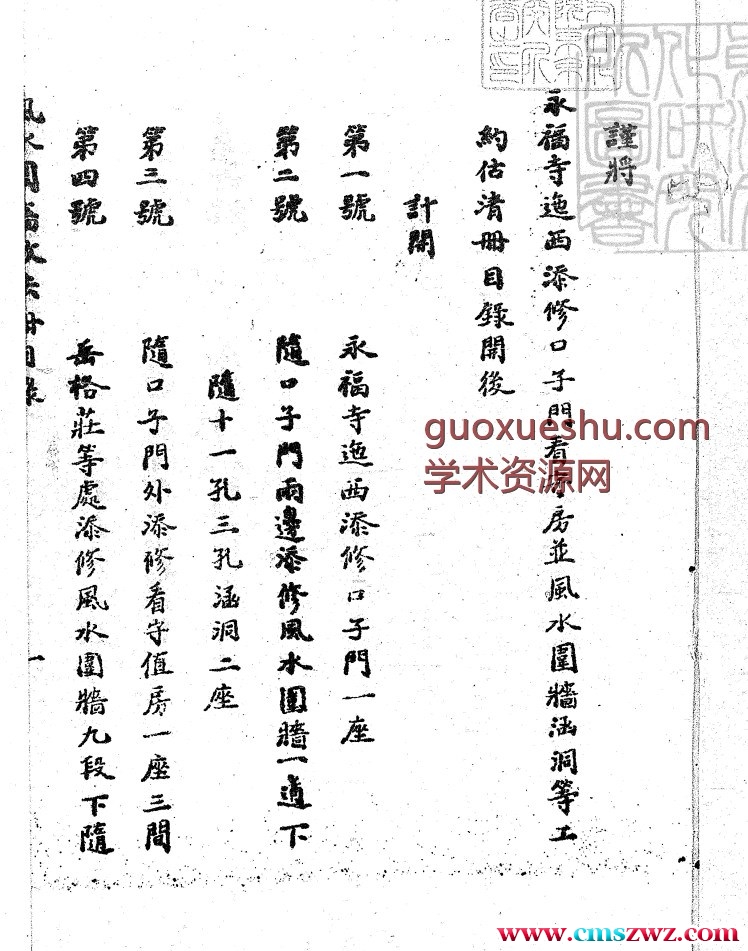 謹將
永福寺迤西添修口子門看守房並風水圍牆涵洞等工
約估清冊目錄開後
計開
第一號 永福寺迤西添修口子門一座
第二號 隨口子門兩邊添修風水圍牆一道下
隨十一孔三孔涵洞二座
第三號 隨口子門外添修看守值房一座三間
第四號 岳格莊等處添修風水圍牆九段下隨
風水圍牆 目錄 一
guoxueshu.com
学术资源网
www.cmszwz.com